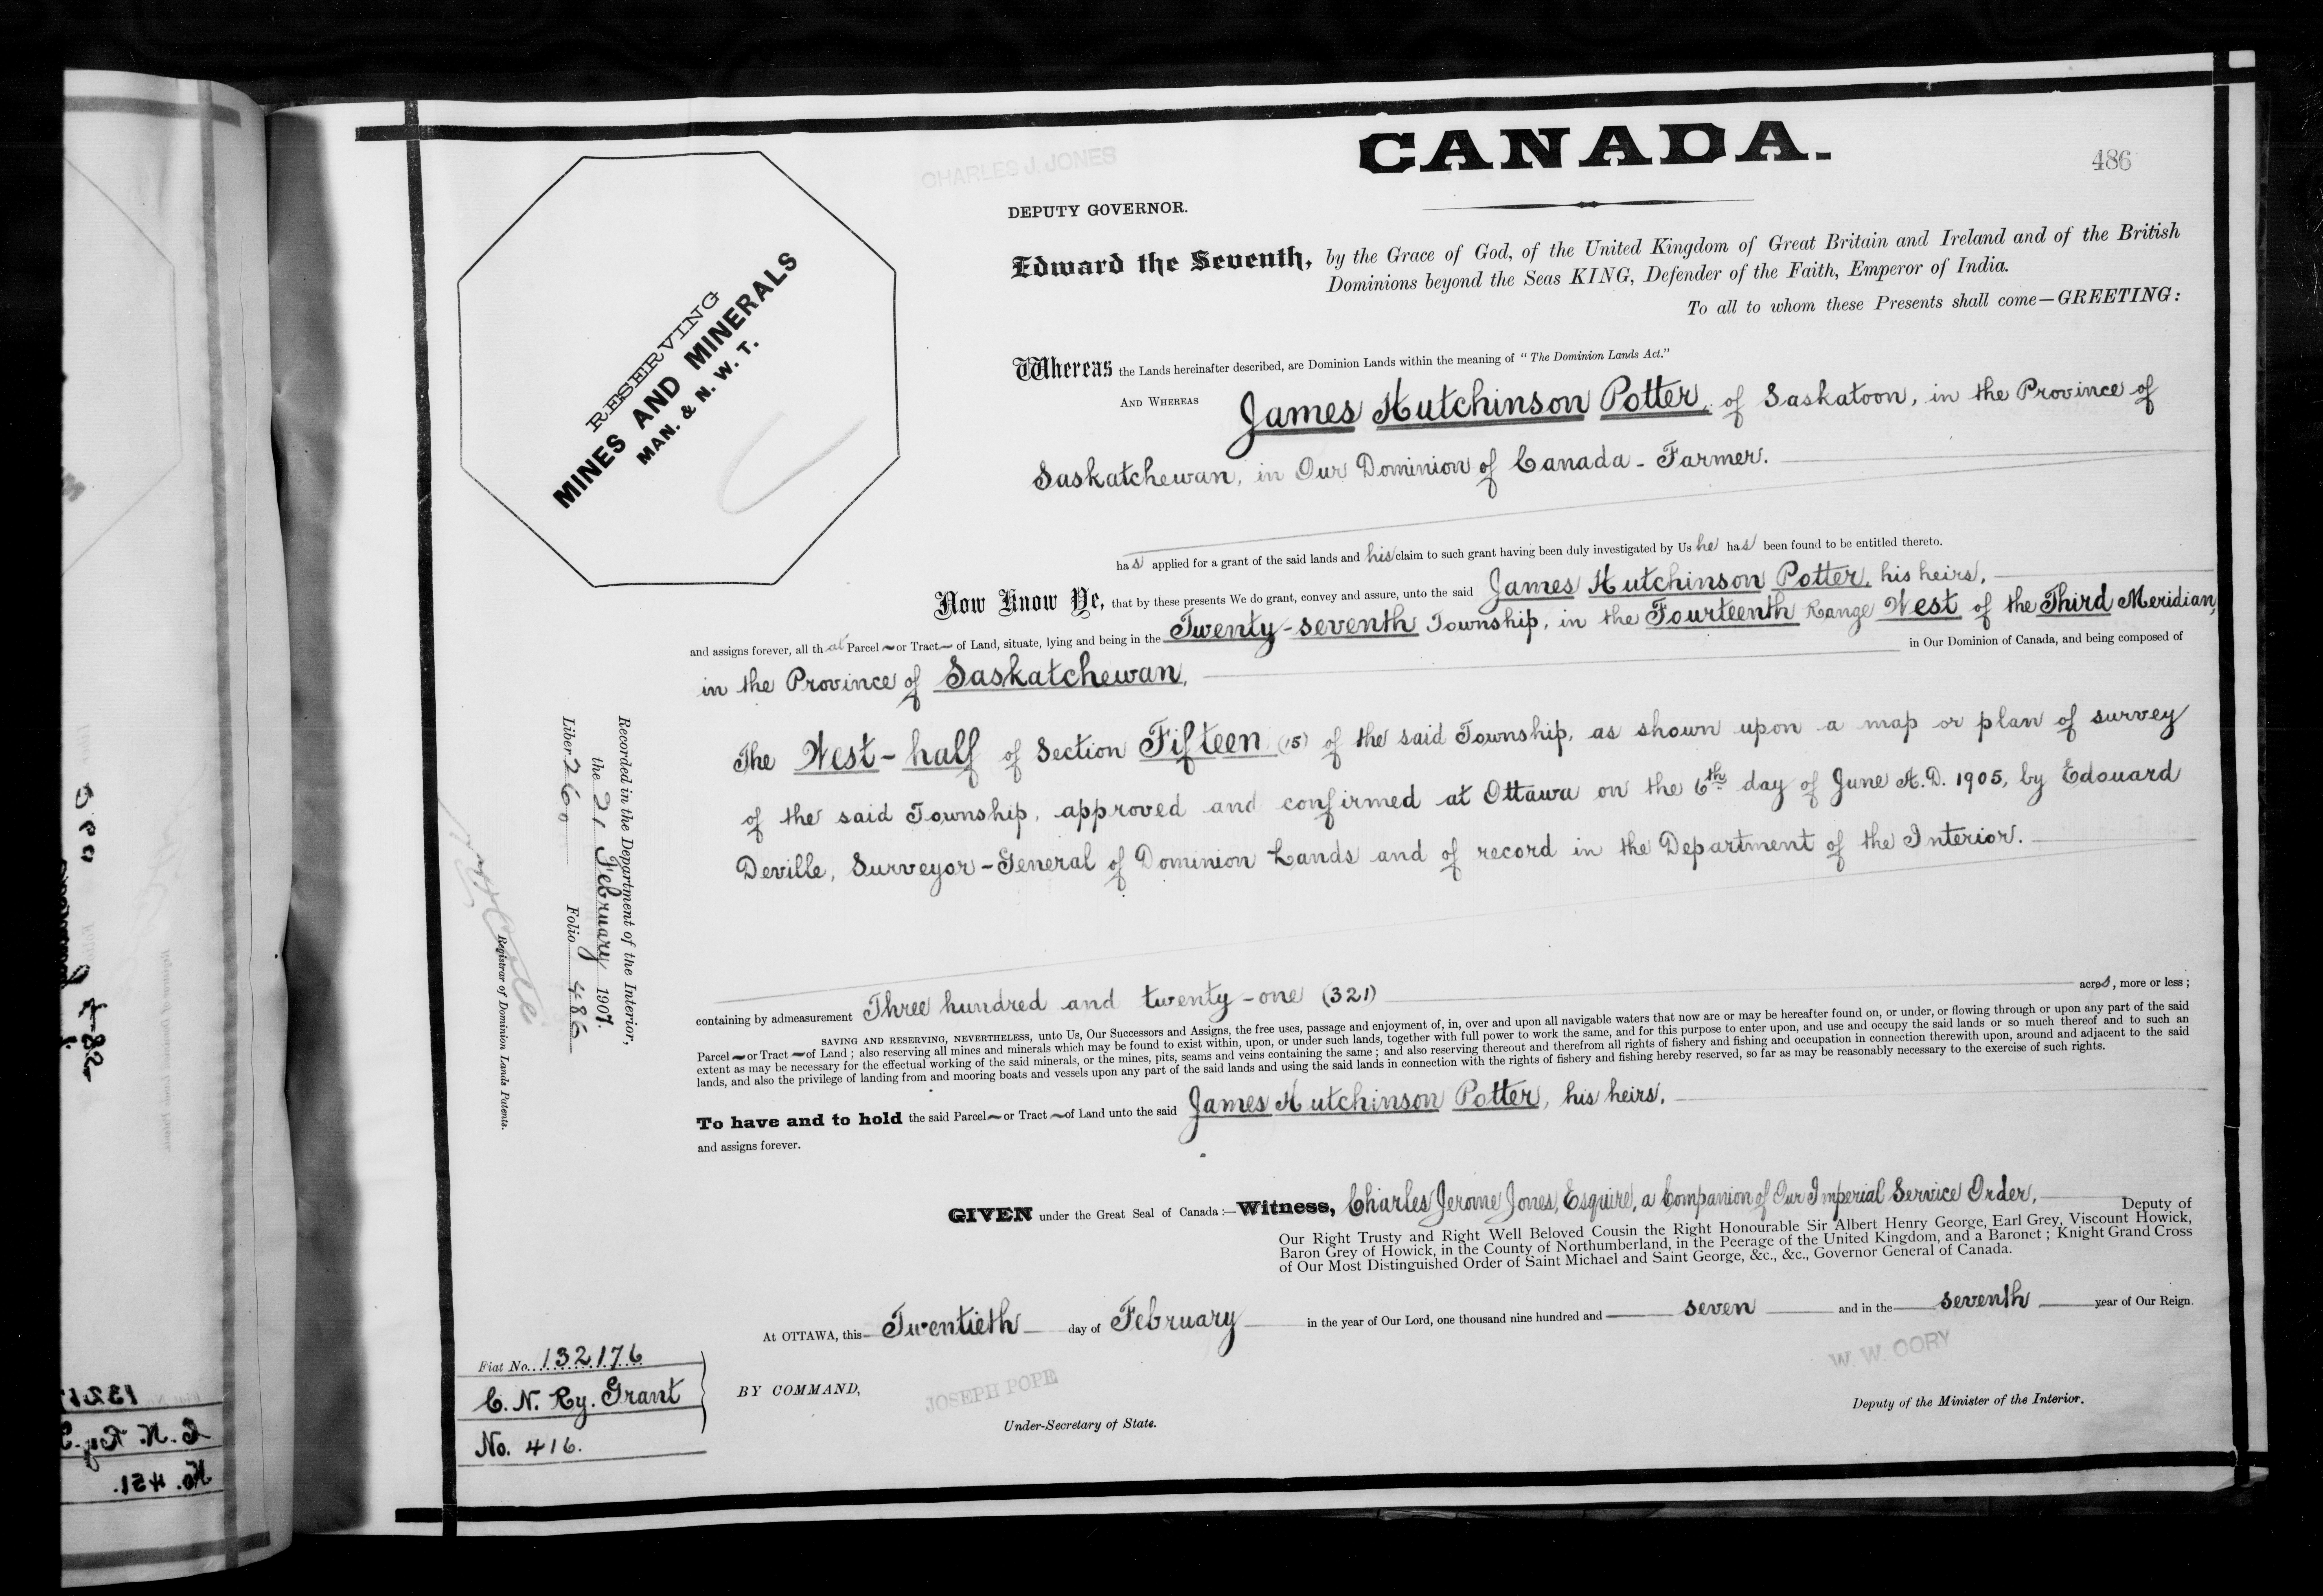 CANADA.
486
CHARLES J. JONES
DEPUTY GOVERNOR.
RESERVING
MINES AND MINERALS
MAN. & N. W. T.
Edward the Seventh, by the Grace of God, of the United Kingdom of Great Britain and Ireland and of the British
Dominions beyond the Seas KING, Defender of the Faith, Emperor of India.
To all to whom these Presents shall come—GREETING:
Whereas the Lands hereinafter described, are Dominion Lands within the meaning of "The Dominion Lands Act."
AND WHEREAS James Hutchinson Potter, of Saskatoon, in the Province of
Saskatchewan, in Our Dominion of Canada - Farmer.
has applied for a grant of the said lands and his claim to such grant having been duly investigated by Us he has been found to be entitled thereto.
Now Know Ye, that by these presents We do grant, convey and assure, unto the said James Hutchinson Potter, his heirs,
and assigns forever, all that Parcel or Tract of Land, situate, lying and being in the Twenty-seventh Township, in the Fourteenth Range West of the Third Meridian,
in the Province of Saskatchewan, in Our Dominion of Canada, and being composed of
The West-half of Section Fifteen (15) of the said Township, as shown upon a map or plan of survey
of the said Township, approved and confirmed at Ottawa on the 6th day of June A.D. 1905, by Edouard
Deville, Surveyor-General of Dominion Lands and of record in the Department of the Interior.
containing by admeasurement Three hundred and twenty-one (321) acres, more or less;
SAVING AND RESERVING, NEVERTHELESS, unto Us, Our Successors and Assigns, the free uses, passage and enjoyment of, in, over and upon all navigable waters that now are or may be hereafter found on, or under, or flowing through or upon any part of the said
Parcel or Tract of Land; also reserving all mines and minerals which may be found to exist within, upon, or under such lands, together with full power to work the same, and for this purpose to enter upon, and use and occupy the said lands or so much thereof and to such an
extent as may be necessary for the effectual working of the said minerals, or the mines, pits, seams and veins containing the same; and also reserving thereout and therefrom all rights of fishery and fishing and occupation in connection therewith upon, around and adjacent to the said
lands, and also the privilege of landing from and mooring boats and vessels upon any part of the said lands and using the said lands in connection with the rights of fishery and fishing hereby reserved, so far as may be reasonably necessary to the exercise of such rights.
To have and to hold the said Parcel or Tract of Land unto the said James Hutchinson Potter, his heirs,
and assigns forever.
GIVEN under the Great Seal of Canada:—Witness, Charles Jerome Jones, Esquire, a Companion of Our Imperial Service Order, Deputy of
Our Right Trusty and Right Well Beloved Cousin the Right Honourable Sir Albert Henry George, Earl Grey, Viscount Howick,
Baron Grey of Howick, in the County of Northumberland, in the Peerage of the United Kingdom, and a Baronet; Knight Grand Cross
of Our Most Distinguished Order of Saint Michael and Saint George, &c., &c., Governor General of Canada.
At OTTAWA, this Twentieth day of February in the year of Our Lord, one thousand nine hundred and seven and in the seventh year of Our Reign.
BY COMMAND,
JOSEPH POPE
Under-Secretary of State.
W. W. CORY
Deputy of the Minister of the Interior.
Recorded in the Department of the Interior,
the 21 February 1907.
Liber 260 Folio 486
Registrar of Dominion Lands Patents.
Fiat No. 132176
C. N. Ry. Grant
No. 416.
No. 451.